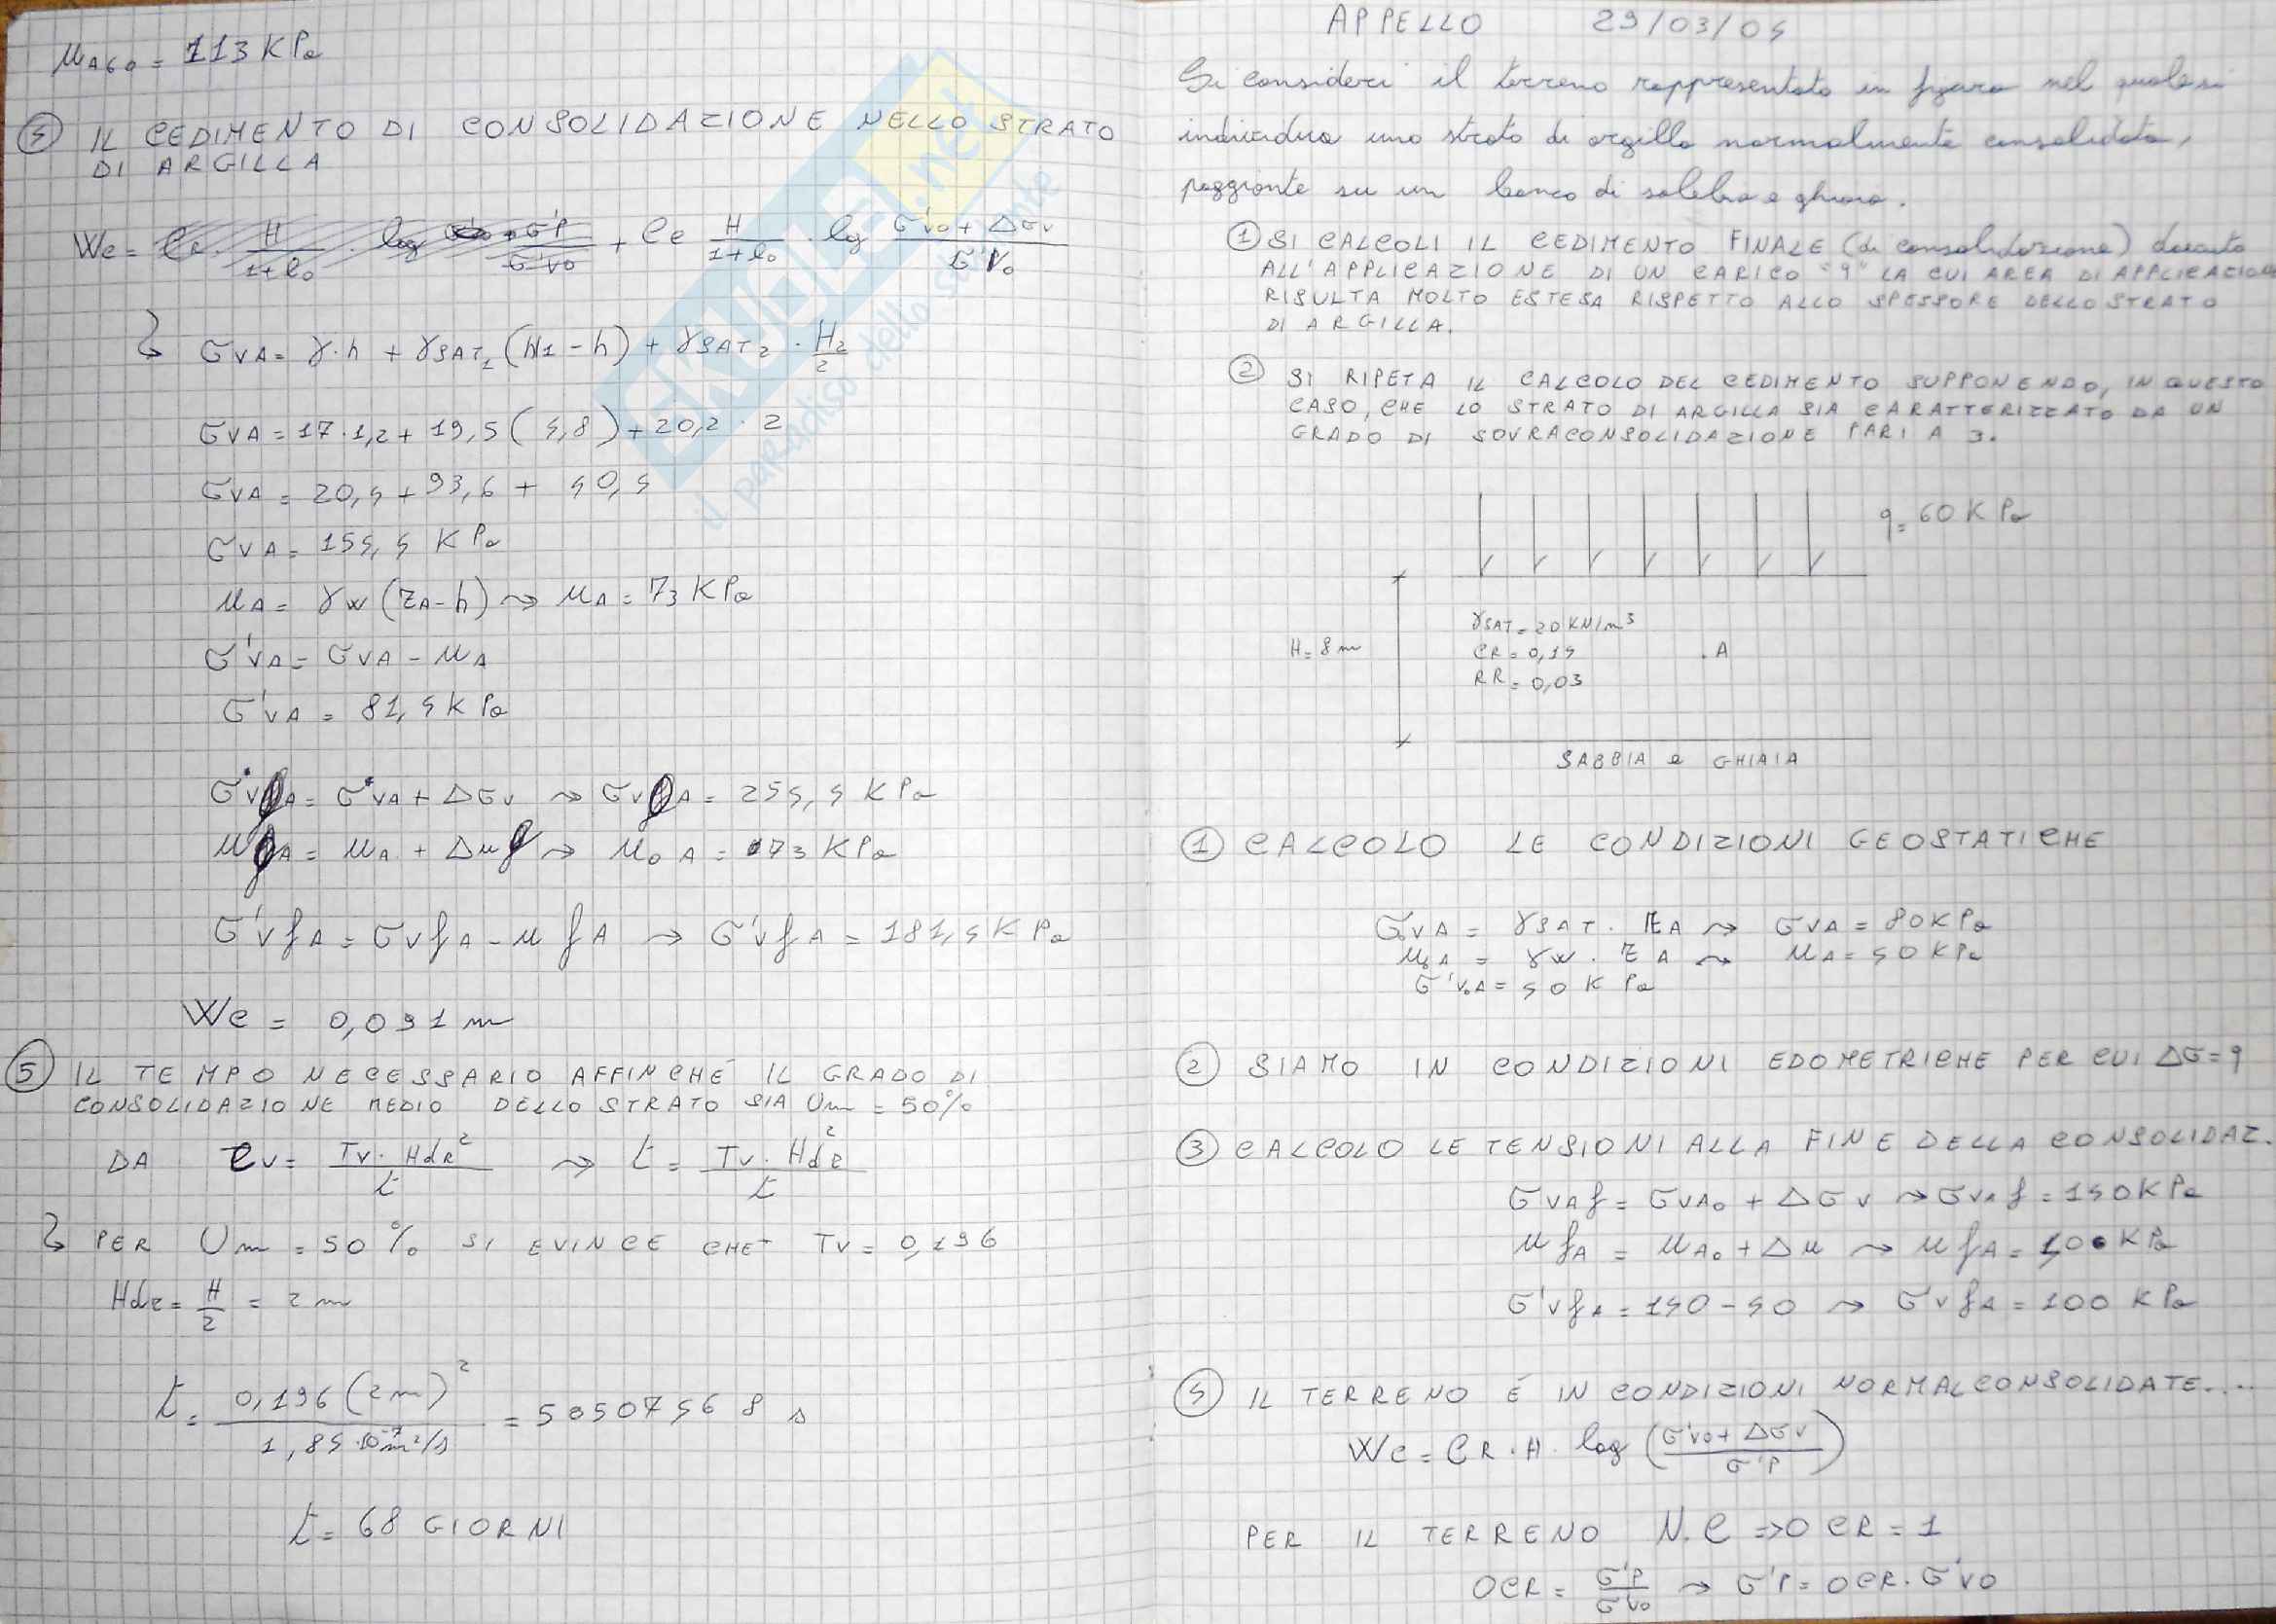 μA60 = 113 KPa
④ IL CEDIMENTO DI CONSOLIDAZIONE NELLO STRATO
DI ARGILLA
Wc = Cc · H/(1+e0) · log σ'P/σ'V0 + Cc H/(1+e0) · log (σ'V0 + Δσv)/σ'V0
↳ σVA = γ·h + γSAT1 (H1-h) + γSAT2 · H2/2
σVA = 17·1,2 + 19,5 (4,8) + 20,2 · 2
σVA = 20,4 + 93,6 + 40,4
σVA = 154,4 KPa
μA = γw (ZA-h) ⇝ μA = 73 KPa
σ'VA = σVA - μA
σ'VA = 81,4 KPa
σvfA = σVA + Δσv ⇝ σvfA = 254,4 KPa
μfA = μA + Δμf ⇝ μ0A = 73 KPa
σ'vfA = σvfA - μfA → σ'vfA = 181,4 KPa
Wc = 0,091 m
⑤ IL TEMPO NECESSARIO AFFINCHÉ IL GRADO DI
CONSOLIDAZIONE MEDIO DELLO STRATO SIA Um = 50%
DA Cv = Tv · HdR²/t ⇝ t = Tv · HdR²/t
↳ PER Um = 50% SI EVINCE CHE Tv = 0,196
HdR = H/2 = 2 m
t = 0,196 (2m)²/1,84·10⁻⁷ m²/s = 50507456 8 s
t = 68 GIORNI
APPELLO 29/03/04
Si consideri il terreno rappresentato in figura nel quale si
individua uno strato di argilla normalmente consolidata,
poggiante su un banco di sabbia e ghiaia.
① SI CALCOLI IL CEDIMENTO FINALE (di consolidazione) dovuto
ALL'APPLICAZIONE DI UN CARICO "q" LA CUI AREA DI APPLICAZIONE
RISULTA MOLTO ESTESA RISPETTO ALLO SPESSORE DELLO STRATO
DI ARGILLA.
② SI RIPETA IL CALCOLO DEL CEDIMENTO SUPPONENDO, IN QUESTO
CASO, CHE LO STRATO DI ARGILLA SIA CARATTERIZZATO DA UN
GRADO DI SOVRACONSOLIDAZIONE PARI A 3.
q = 60 KPa
γSAT = 20 KN/m³
H = 8 m
CR = 0,14
. A
RR = 0,03
SABBIA e GHIAIA
① CALCOLO LE CONDIZIONI GEOSTATICHE
σ0VA = γSAT · ZA ⇝ σVA = 80 KPa
μ0A = γw · ZA ⇝ μA = 40 KPa
σ'V0A = 40 KPa
② SIAMO IN CONDIZIONI EDOMETRICHE PER CUI Δσ = q
③ CALCOLO LE TENSIONI ALLA FINE DELLA CONSOLIDAZ.
σVAf = σVA0 + Δσv ⇝ σVAf = 140 KPa
μfA = μA0 + Δμ ⇝ μfA = 40 KPa
σ'vfA = 140 - 40 ⇝ σvfA = 100 KPa
④ IL TERRENO É IN CONDIZIONI NORMALCONSOLIDATE....
Wc = CR · H · log ((σ'V0 + Δσv)/σ'P)
PER IL TERRENO N.C ⇒ OCR = 1
OCR = σ'P/σ'V0 ⇝ σ'P = OCR · σ'V0
SKUOLA.net
il paradiso dello studente